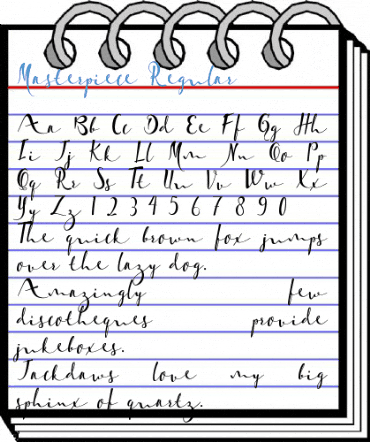 Masterpiece Regular
Aa Bb Cc Dd Ee Ff Gg Hh
Ii Jj Kk Ll Mm Nn Oo Pp
Qq Rr Ss Tt Uu Vv Ww Xx
Yy Zz 1 2 3 4 5 6 7 8 9 0
The quick brown fox jumps
over the lazy dog.
Amazingly few
discotheques provide
jukeboxes.
Jackdaws love my big
sphinx of quartz.